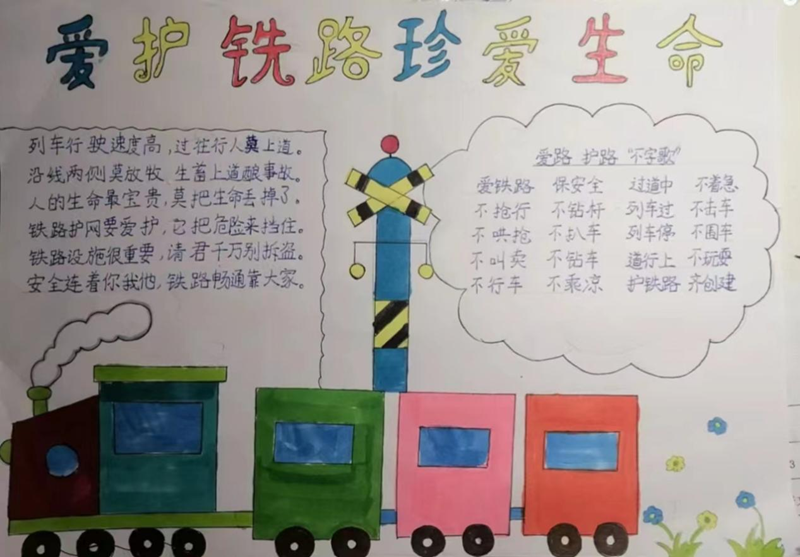 爱护铁路珍爱生命
列车行驶速度高，过往行人莫上道。
沿线两侧莫放牧 生畜上道酿事故。
人的生命最宝贵，莫把生命去掉了。
铁路护网要爱护，它把危险来挡住。
铁路设施很重要，请君千万别拆盗。
安全连着你我他，铁路畅通靠大家。
爱路 护路 "不字歌"
爱铁路 保安全 过道中 不着急
不抢行 不钻杆 列车过 不击车
不哄抢 不扒车 列车停 不围车
不叫卖 不钻车 道行上 不玩耍
不行车 不乘凉 护铁路 齐创建